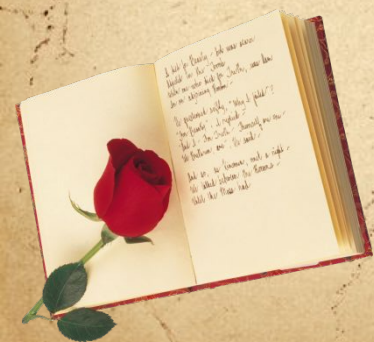 I died for Beauty - but was scarce
Adjusted in the Tomb
When One who died for Truth, was lain
In an adjoining Room -
He questioned softly, "Why I failed"?
"For Beauty", I replied -
"And I - for Truth - Themself are One -
We Brethren are", He said -
And so, as Kinsmen, met a Night -
We talked between the Rooms -
Until the Moss had